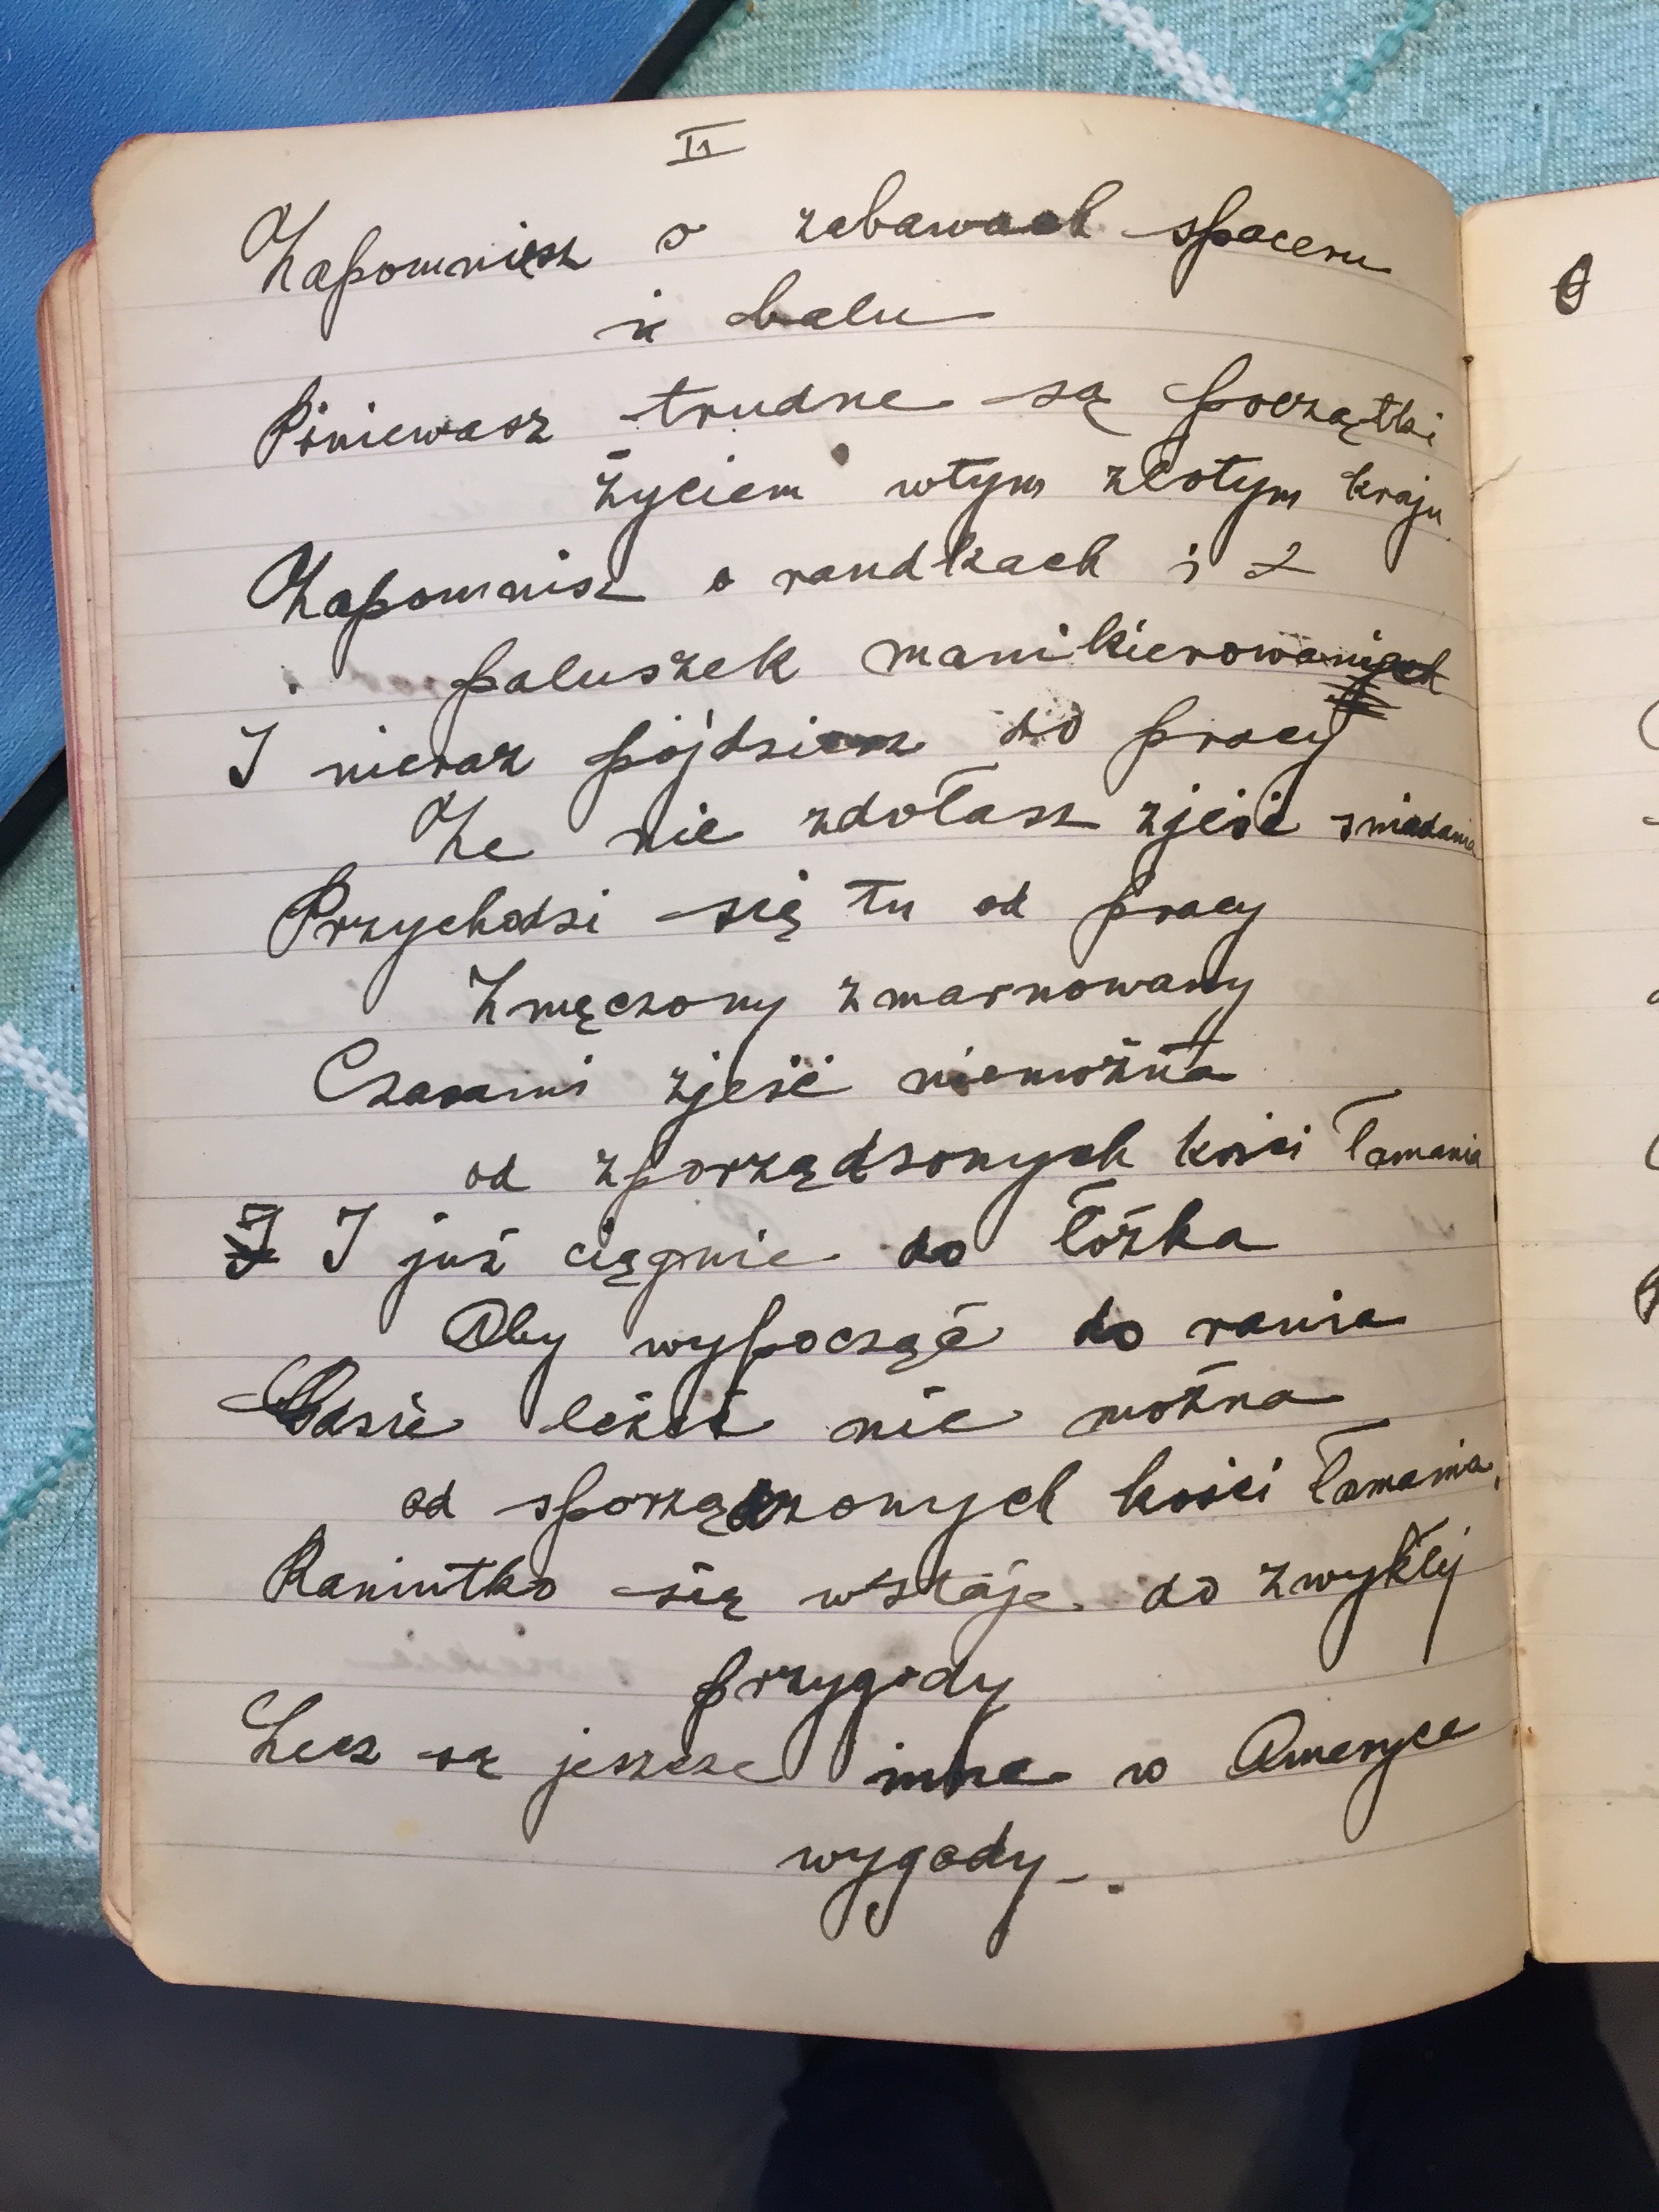 II
Zapomnisz o zabawach spaceru
i balu
Poniewasz trudne są początki
życiem wtym złotym kraju
Zapomnisz o randkach i z
paluszek manikierowanych
I nieraz pójdziesz do pracy
Że nie zdołasz zjeść śniadania
Przychodzi się tu od pracy
Zmęczony zmarnowany
Czasami zjeść niemożna
od zporządzonych kości łamania
I I już ciągnie do łóżka
Aby wypocząć do rania
leżeć nie można
od sporządzonych kości łamania,
Raniutko się wstaje do zwykłej
przygody
Lecz są jeszcze inne w Ameryce
wygody_.